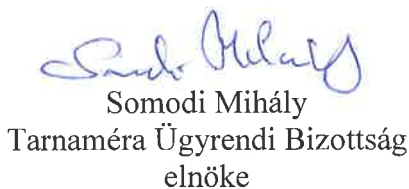 Somodi Mihály
Somodi Mihály
Tarnaméra Ügyrendi Bizottság
elnöke